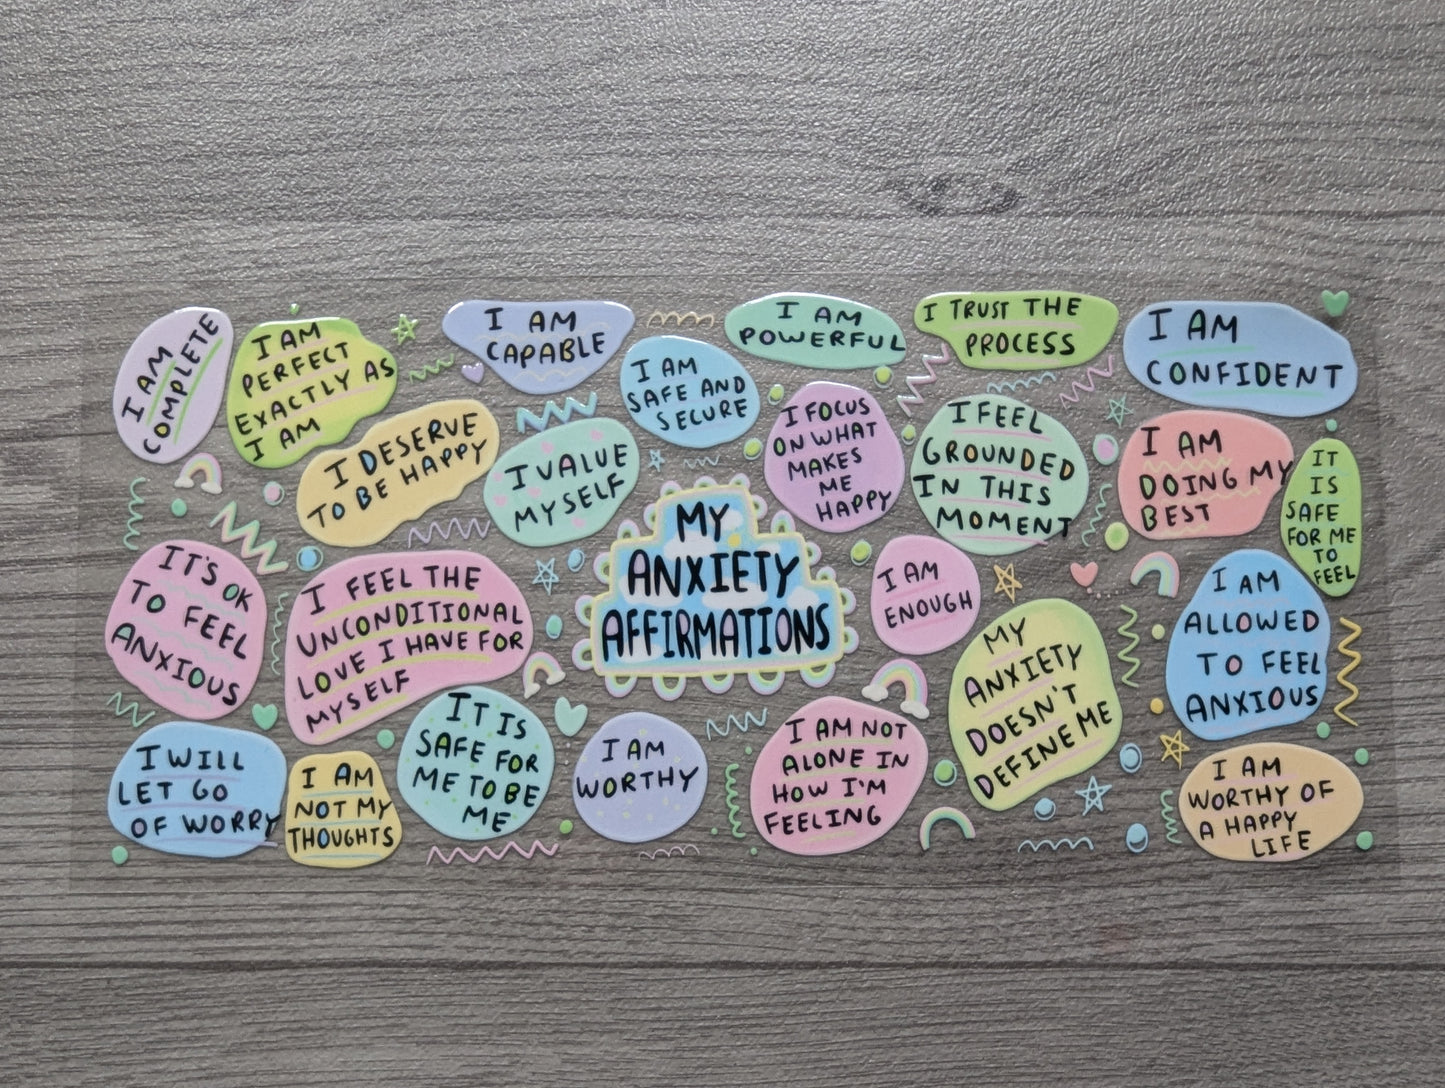 I AM
COMPLETE
I AM
PERFECT
EXACTLY AS
I AM
I AM
CAPABLE
I AM
SAFE AND
SECURE
I AM
POWERFUL
I TRUST THE
PROCESS
I AM
CONFIDENT
I DESERVE
TO BE HAPPY
I VALUE
MYSELF
I FOCUS
ON WHAT
MAKES
ME
HAPPY
I FEEL
GROUNDED
IN THIS
MOMENT
I AM
DOING MY
BEST
IT
IS
SAFE
FOR ME
TO
FEEL
IT'S OK
TO FEEL
ANXIOUS
I FEEL THE
UNCONDITIONAL
LOVE I HAVE FOR
MYSELF
MY
ANXIETY
AFFIRMATIONS
I AM
ENOUGH
MY
ANXIETY
DOESN'T
DEFINE ME
I AM
ALLOWED
TO FEEL
ANXIOUS
I WILL
LET GO
OF WORRY
I AM
NOT MY
THOUGHTS
IT IS
SAFE FOR
ME TO BE
ME
I AM
WORTHY
I AM NOT
ALONE IN
HOW I'M
FEELING
I AM
WORTHY OF
A HAPPY
LIFE